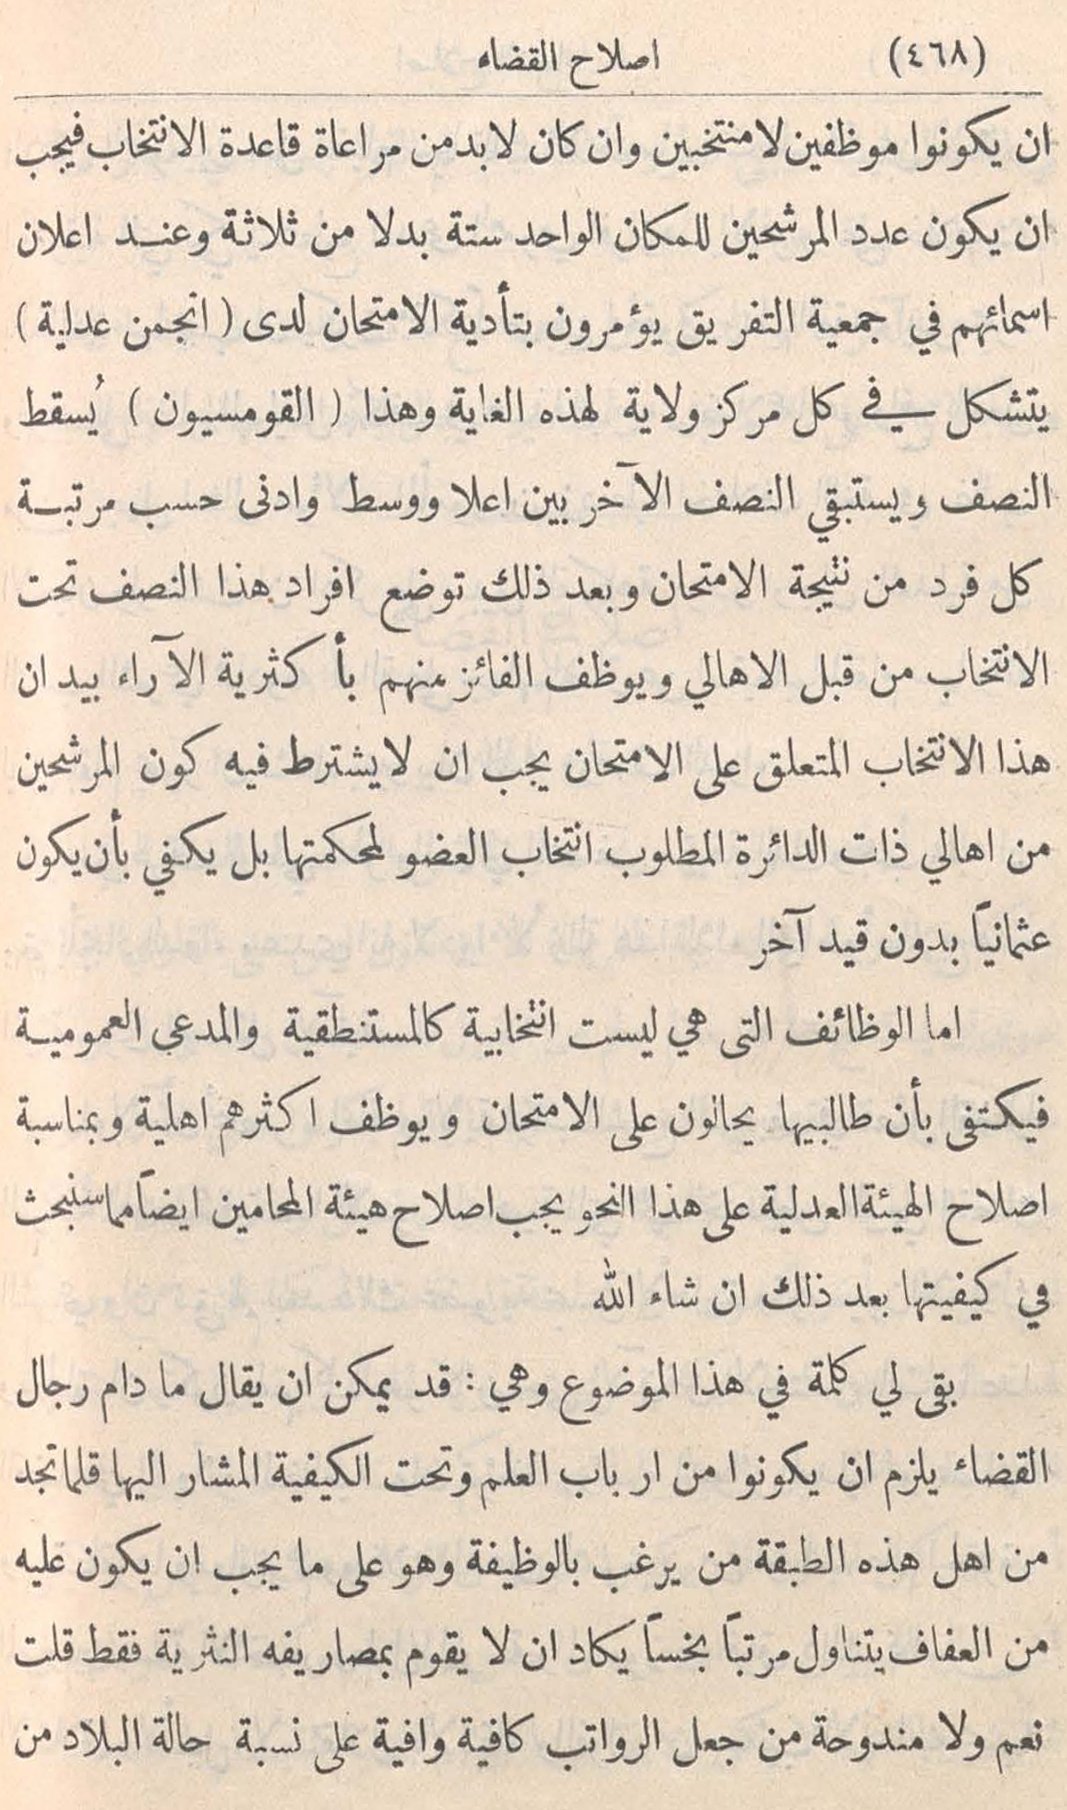 (٤٦٨) اصلاح القضاء
ان يكونوا موظفين لا منتخبين وان كان لا بد من مراعاة قاعدة الانتخاب فيجب
ان يكون عدد المرشحين للمكان الواحد ستة بدلا من ثلاثة وعند اعلان
اسمائهم في جمعية التفريق يؤمرون بتأدية الامتحان لدى ( انجمن عدلية )
يتشكل في كل مركز ولاية لهذه الغاية وهذا ( القومسيون ) يُسقط
النصف ويستبقي النصف الآخر بين اعلا ووسط وادنى حسب مرتبة
كل فرد من نتيجة الامتحان وبعد ذلك توضع افراد هذا النصف تحت
الانتخاب من قبل الاهالي ويوظف الفائز منهم بأكثرية الآراء بيد ان
هذا الانتخاب المتعلق على الامتحان يجب ان لا يشترط فيه كون المرشحين
من اهالي ذات الدائرة المطلوب انتخاب العضو لمحكمتها بل يكفي بأن يكون
عثمانيًا بدون قيد آخر
اما الوظائف التي هي ليست انتخابية كالمستنطقية والمدعي العمومية
فيكتفى بأن طالبيها يحالون على الامتحان ويوظف اكثرهم اهلية وبمناسبة
اصلاح الهيئة العدلية على هذا النحو يجب اصلاح هيئة المحامين ايضًا مما سنبحث
في كيفيتها بعد ذلك ان شاء الله
بقي لي كلمة في هذا الموضوع وهي : قد يمكن ان يقال ما دام رجال
القضاء يلزم ان يكونوا من ارباب العلم وتحت الكيفية المشار اليها قلما تجد
من اهل هذه الطبقة من يرغب بالوظيفة وهو على ما يجب ان يكون عليه
من العفاف يتناول مرتبًا بخسًا يكاد ان لا يقوم بمصاريفه النثرية فقط قلت
نعم ولا مندوحة من جعل الرواتب كافية وافية على نسبة حالة البلاد من